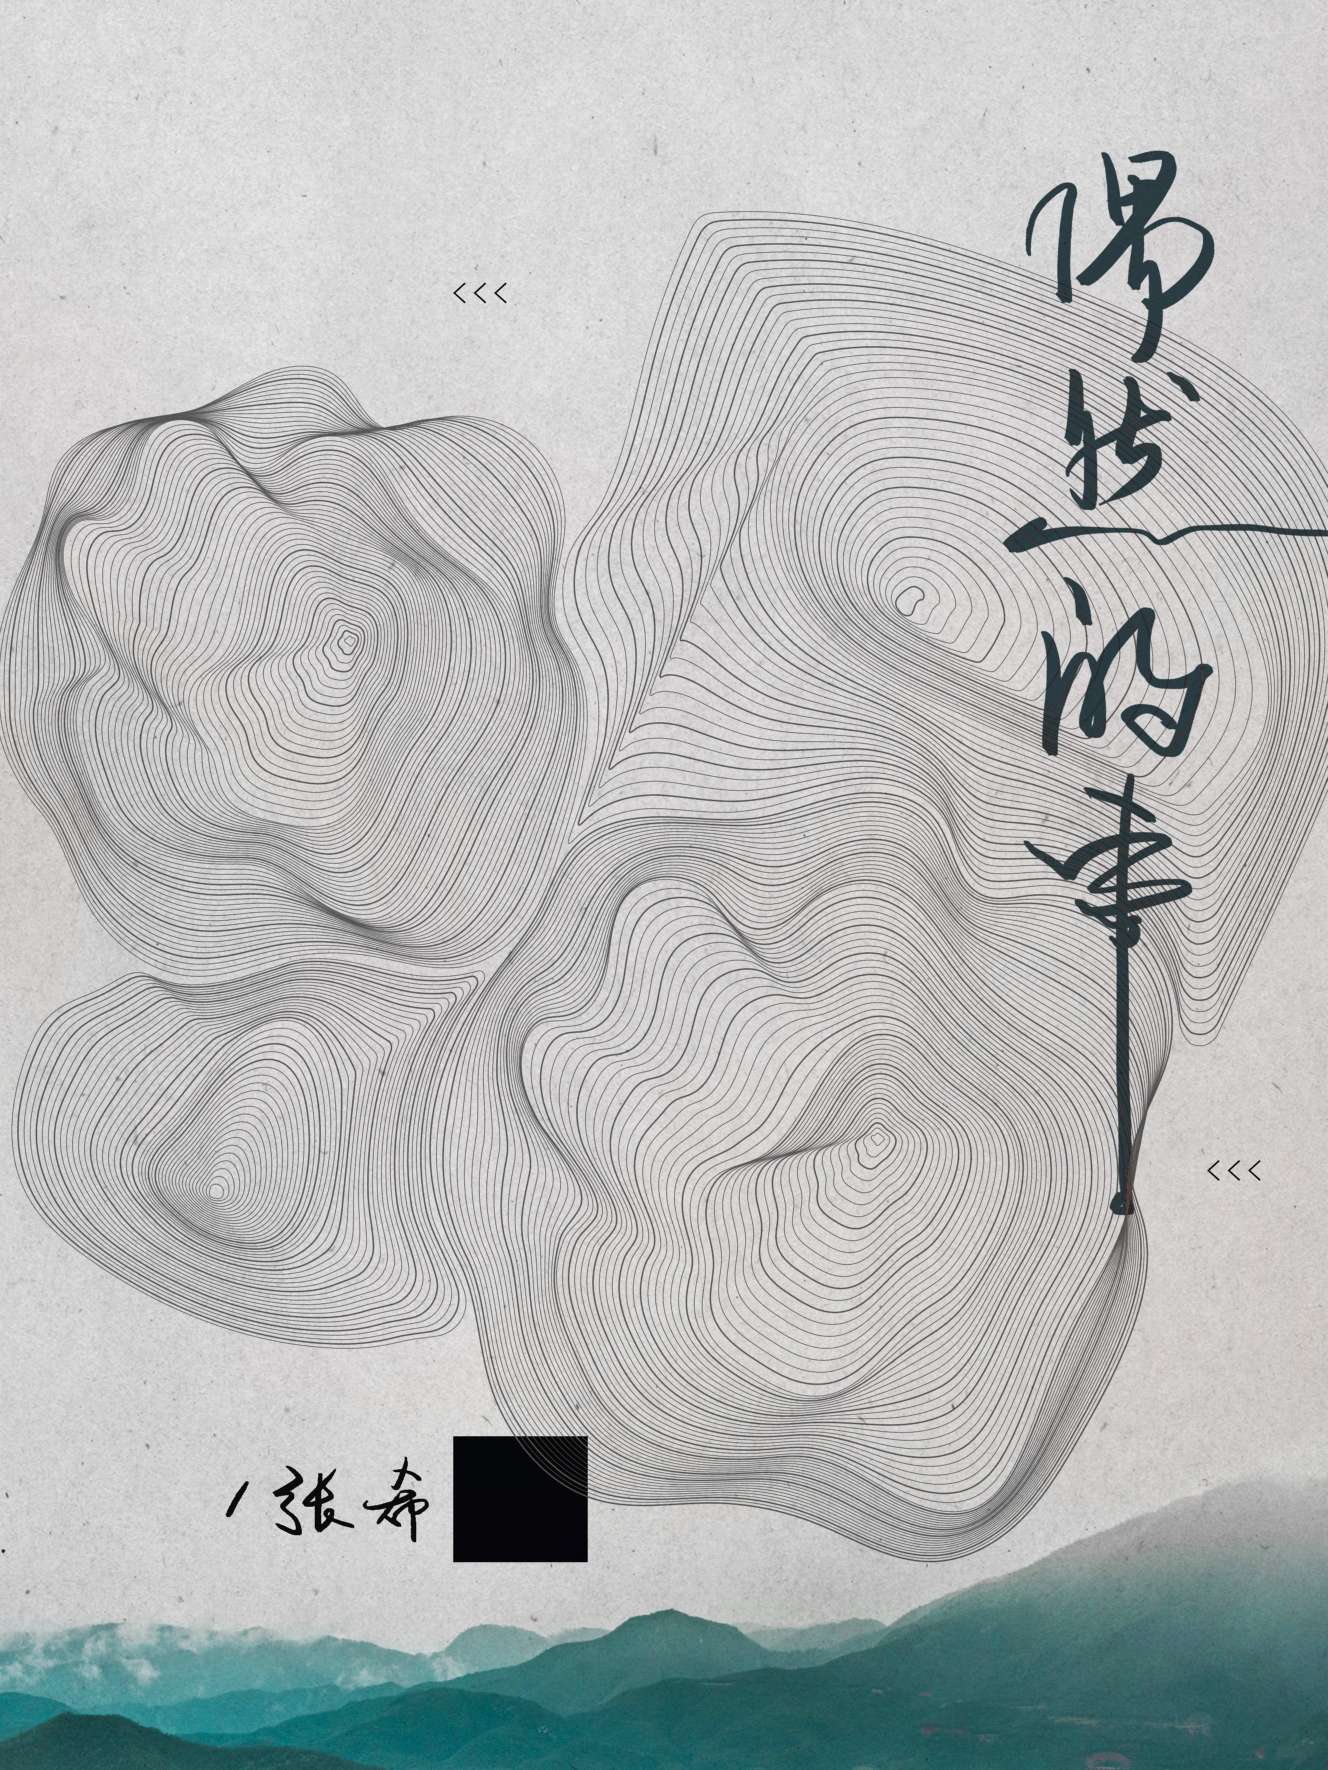 偶然的事
<<<
<<<
/张希